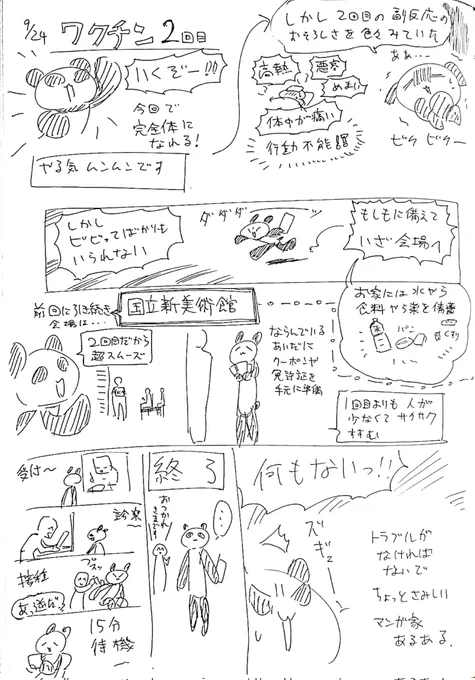 9/24 ワクチン2回目
いくぞー!!!
今回で
完全体に
なれる!
やる気 ムンムンです
しかし2回目の副反応の
おそろしさを
あぁ…
高熱
悪寒
めまい
体中が痛い
行動不能
ビクビクー
しかし
ビビってばかりも
いられない
ダダダ
もしもに備えて
いざ会場へ
お家には水やら
食料やら薬を備蓄
パン
前回に引き続き
会場は…
国立新美術館
2回目だから
超スムーズ
ならんでいる
あいだに
クーポンや
免許証を
手元に準備
1回目よりも人が
少なくてサクサク
すすむ
受付〜
診察
接種
ブスッ
あ、逆だ?
15分
待機
終了
おつかれ
さまです
…
何もないっ!!
ズギューン
トラブルが
なければ
ないで
ちょっとさみしい
マンガ家
あるある。